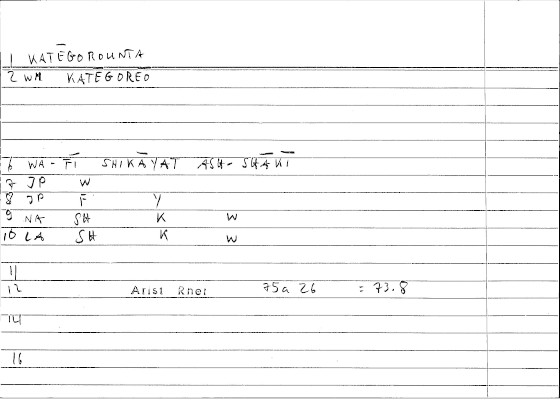 1 KATĒGOROUNTA
2 WM KATĒGOREŌ
6 WA-FĪ SHIKĀYAT ASH-SHĀKĪ
7 JP W
8 JP F Y
9 NA SH K W
10 LA SH K W
11
12 Arist Rhet 75a 26 = 73.8
14
16